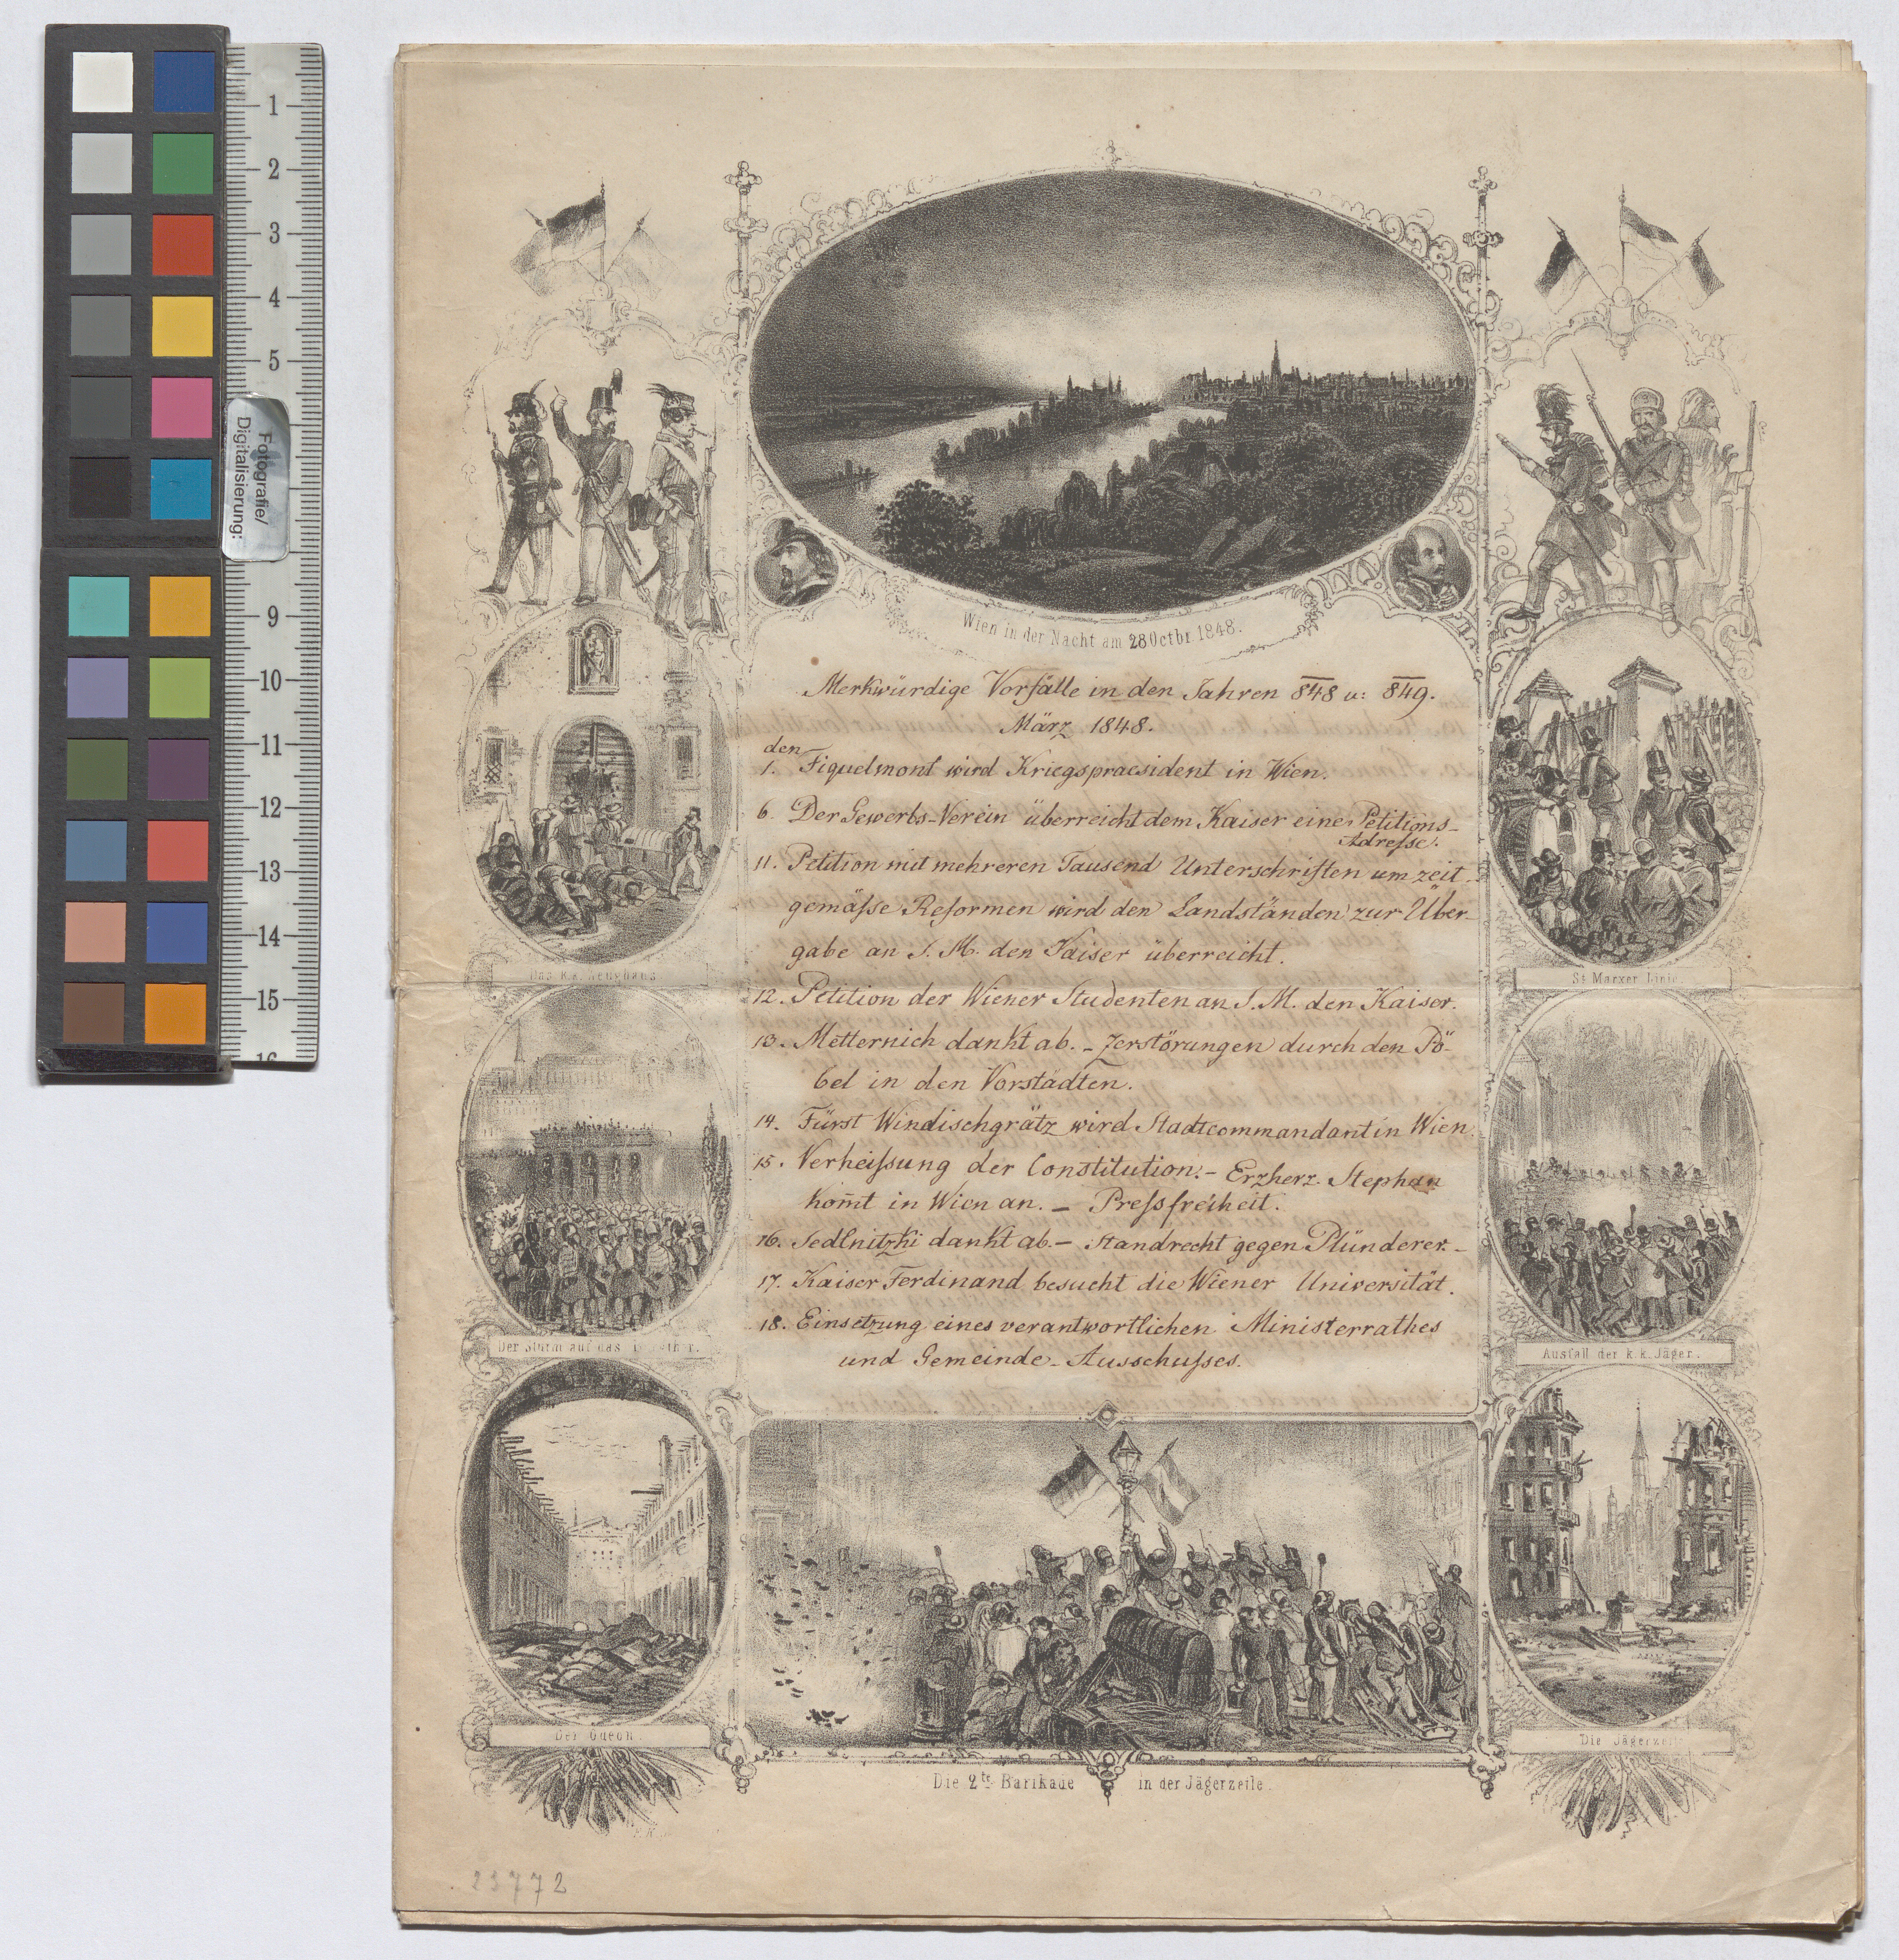 Wien in der Nacht am 28 Octbr. 1848.
Merkwürdige Vorfälle in den Jahren 848 u: 849.
März 1848.
den
1. Fiquelmont wird Kriegspraesident in Wien.
6. Der Gewerbs-Verein überreicht dem Kaiser eine Petitions-
Adreſse.
11. Petition mit mehreren Tausend Unterschriften um zeit-
gemäſse Reformen wird den Landständen zur Über-
gabe an S. M. den Kaiser überreicht.
12. Petition der Wiener Studenten an S. M. den Kaiser.
13. Metternich dankt ab. – Zerstörungen durch den Pö-
bel in den Vorstädten.
14. Fürst Windischgrätz wird Stadtcommandant in Wien.
15. Verheiſsung der Constitution. – Erzherz. Stephan
kom̄t in Wien an. – Preſsfreiheit.
16. Sedlnitzki dankt ab – Standrecht gegen Plünderer. –
17. Kaiser Ferdinand besucht die Wiener Universität.
18. Einsetzung eines verantwortlichen Ministerrathes
und Gemeinde-Ausschuſses.
Das k.k. Zeughaus
Der Sturm auf das
Der Odeon
St Marxer Linie
Ausfall der k.k. Jäger.
Die Jägerzeile
Die 2te Barikade in der Jägerzeile.
23772
Fotografie/
Digitalisierung:
1
2
3
4
5
9
10
11
12
13
14
15
16